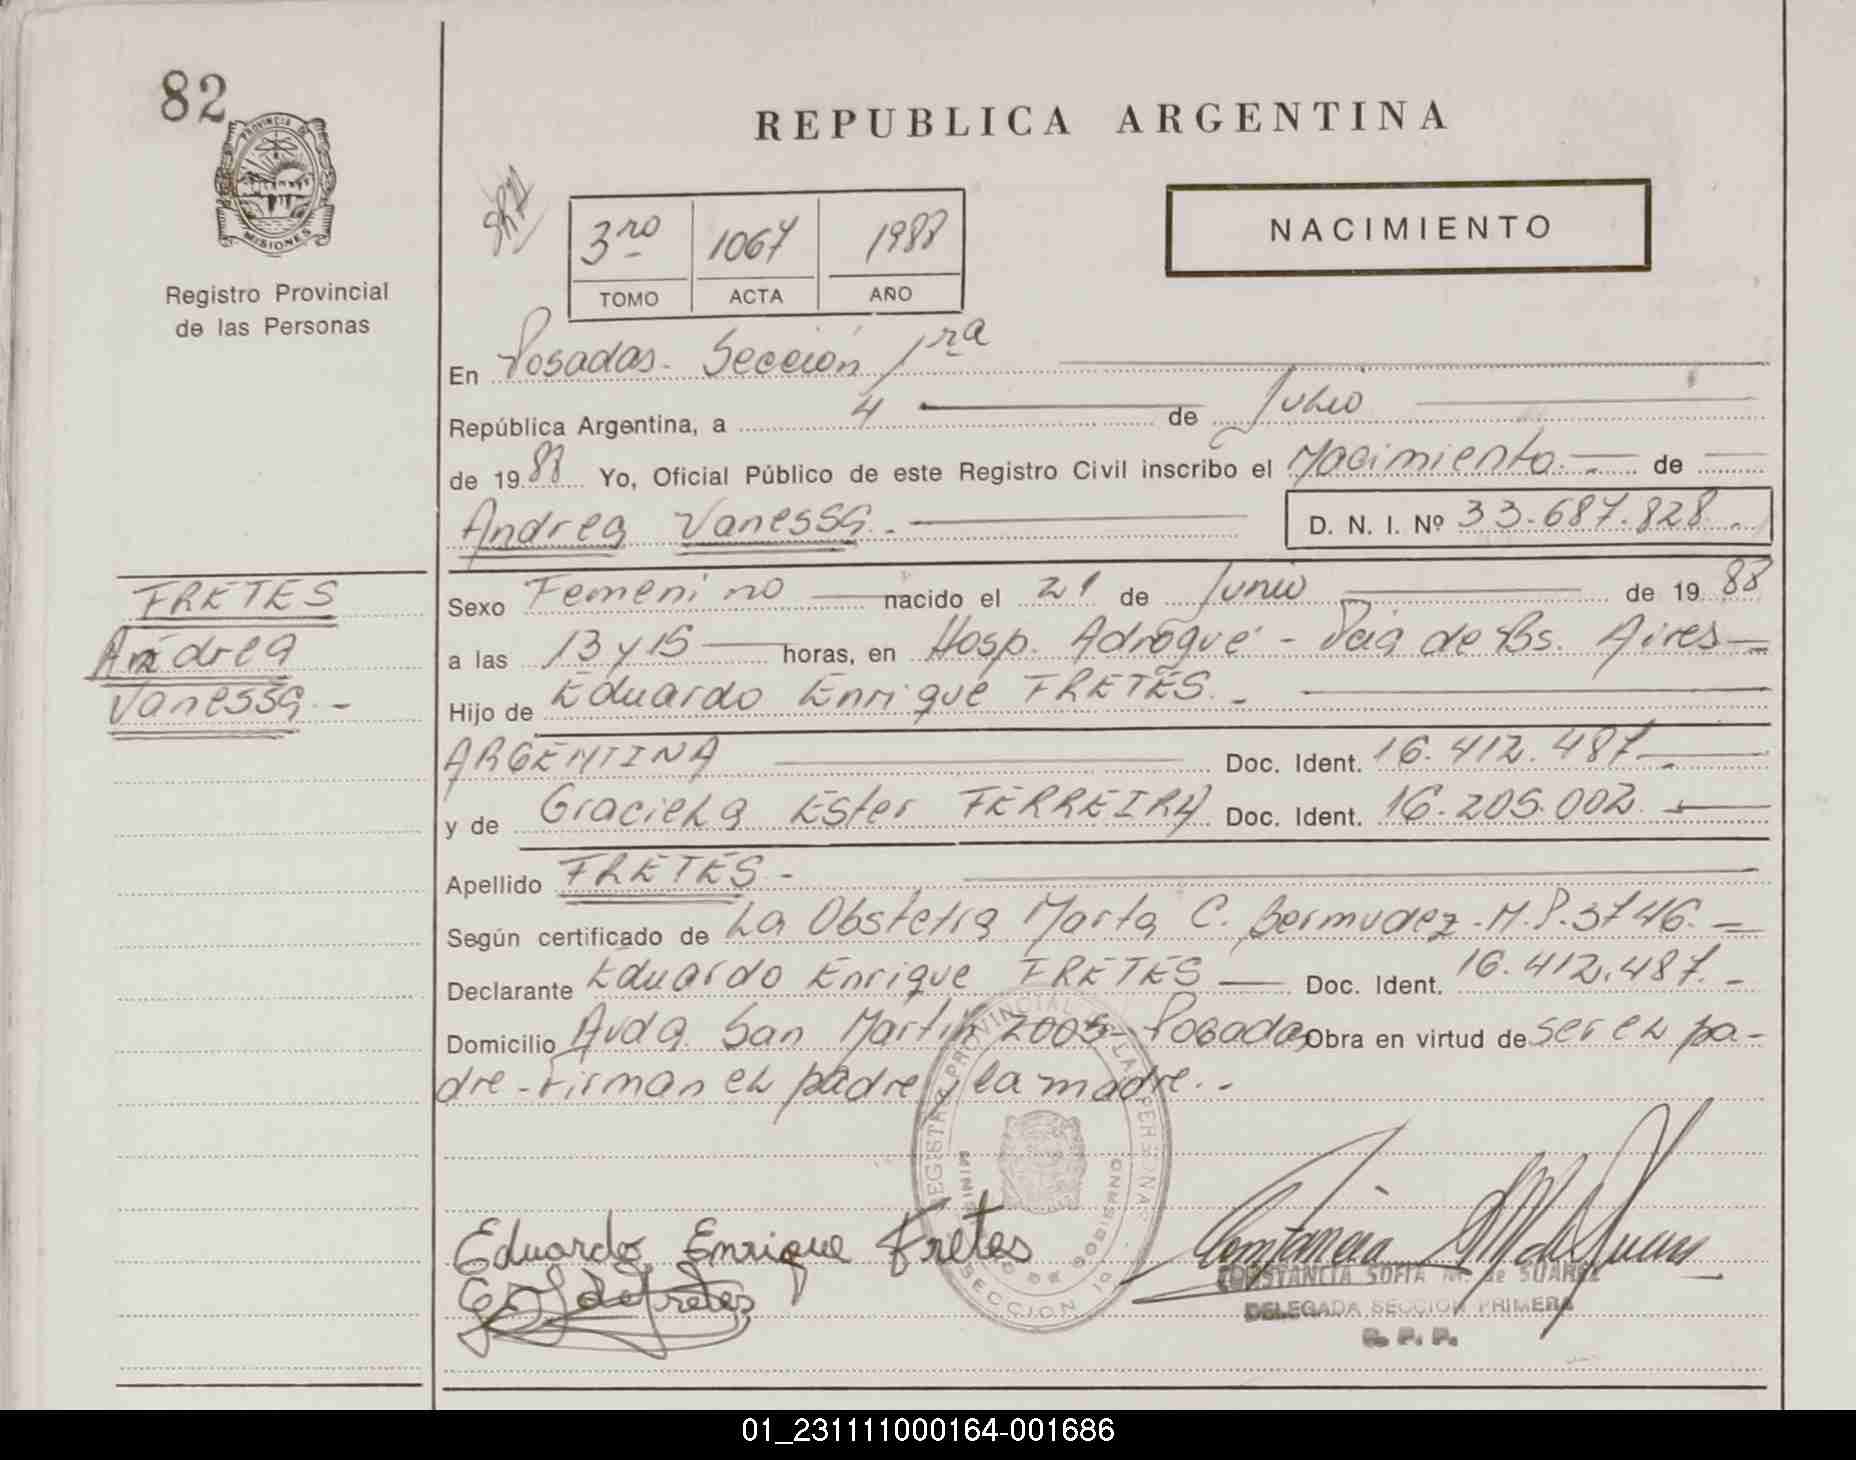 82
PROVINCIA DE
MISIONES
Registro Provincial
de las Personas
REPUBLICA ARGENTINA
3ro 1067 1988
TOMO ACTA AÑO
NACIMIENTO
En Posadas. Sección 1ra
República Argentina, a 4 de Julio
de 1988 Yo, Oficial Público de este Registro Civil inscribo el Nacimiento. de
Andrea Vanessa. D. N. I. Nº 33.687.828.
FRETES
Andrea
Vanessa.-
Sexo Femenino nacido el 21 de Junio de 1988
a las 13 y 15 horas, en Hosp. Adrogué - Pcia de Bs. Aires
Hijo de Eduardo Enrique FRETES.-
ARGENTINA Doc. Ident. 16.412.487.
y de Graciela Ester FERREIRA Doc. Ident. 16.205.002.
Apellido FRETES.-
Según certificado de La Obstetra Marta C. Bermudez. M.P. 3746.
Declarante Eduardo Enrique FRETES Doc. Ident. 16.412.487.-
Domicilio Avda. San Martín 2005- Posadas Obra en virtud de ser el pa-
dre - Firman el padre y la madre.-
REGISTRO PROVINCIAL DE LAS PERSONAS
DE GOBIERNO
SECCION 1a
Eduardo Enrique Fretes
de Fretes
CONSTANCIA SOFIA M. de SUAREZ
DELEGADA SECCION PRIMERA
R. P. P.
01_231111000164-001686